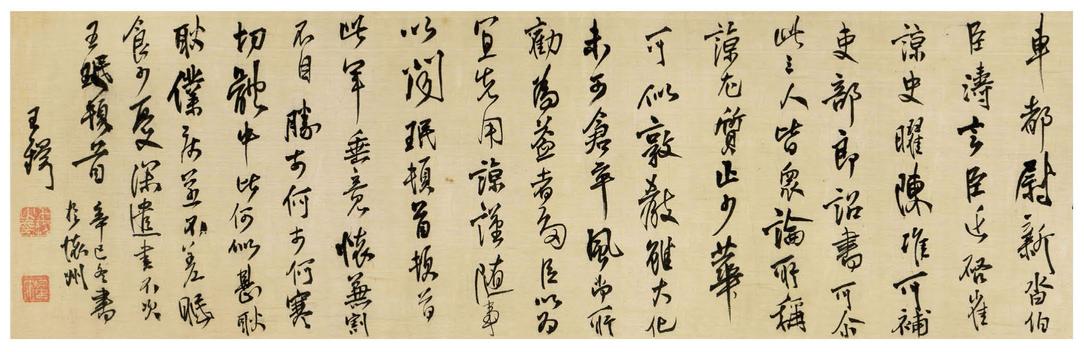 車都尉新沓伯
臣濤言臣近啓崔
諒史曜陳准可補
吏部郎詔書可爾
此三人皆眾論所稱
諒尤質止少華
可以敦教雖大化
未可倉卒風尚所
勸為益者多臣以為
宜先用諒謹隨事
以聞珉頓首頓首
此年垂竟懷兼割
不自勝奈何奈何寒
切體中比何似甚耿
耿僕疾並不差眠
食少憂深遣書不次
王珉頓首 辛巳冬書
於懷州
王鐸